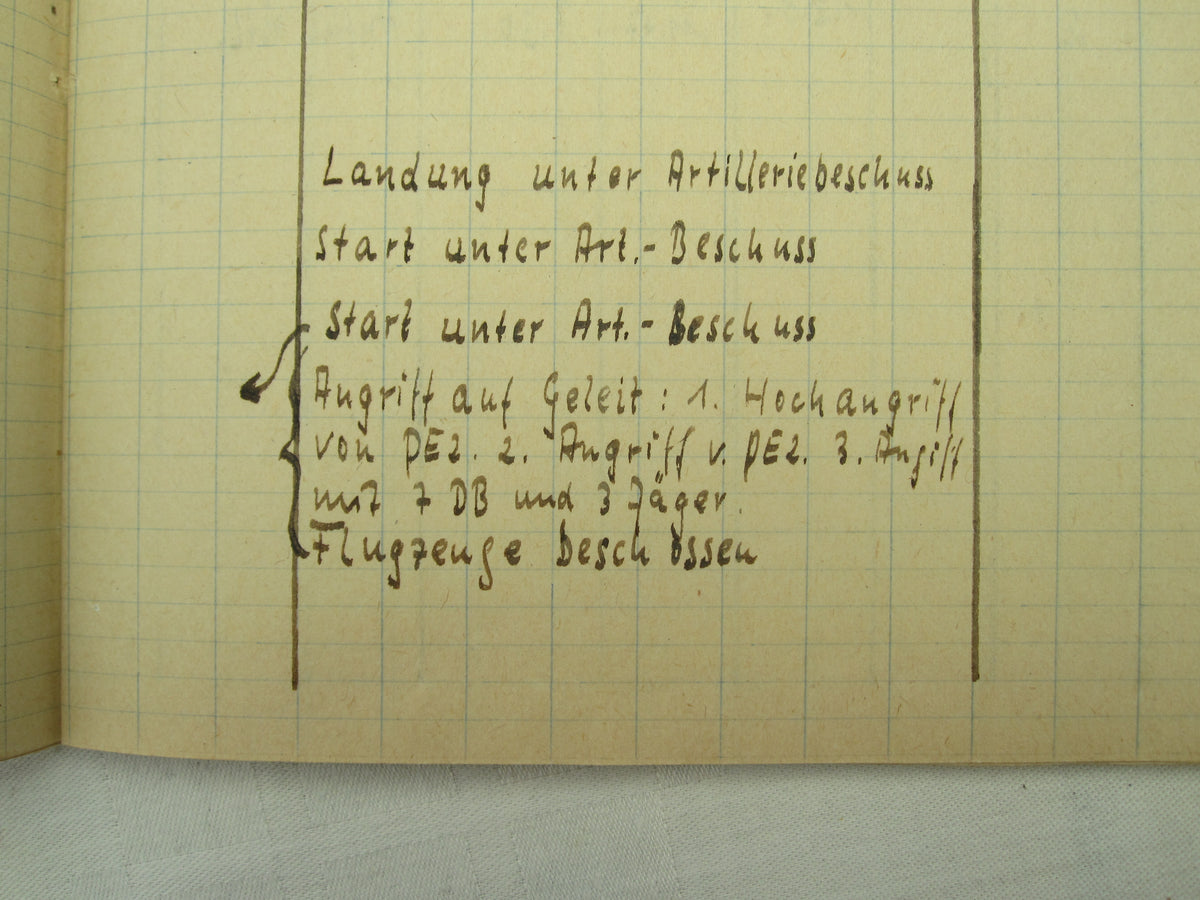 Landung unter Artilleriebeschuss
Start unter Art.-Beschuss
Start unter Art.-Beschuss
Angriff auf Geleit: 1. Hochangriff
von PE2. 2. Angriff v. PE2. 3. Angiff
mit 7 DB und 3 Jäger.
Flugzeuge beschossen